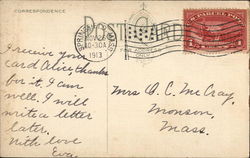 CORRESPONDENCE
POST CARD
SPRING
10-30A
1913
I receive your
card Alice, thanks
for it. I am
well. I will
write a letter
later.
With love
Eva
Mrs A. C. McCray,
Monson,
Mass.